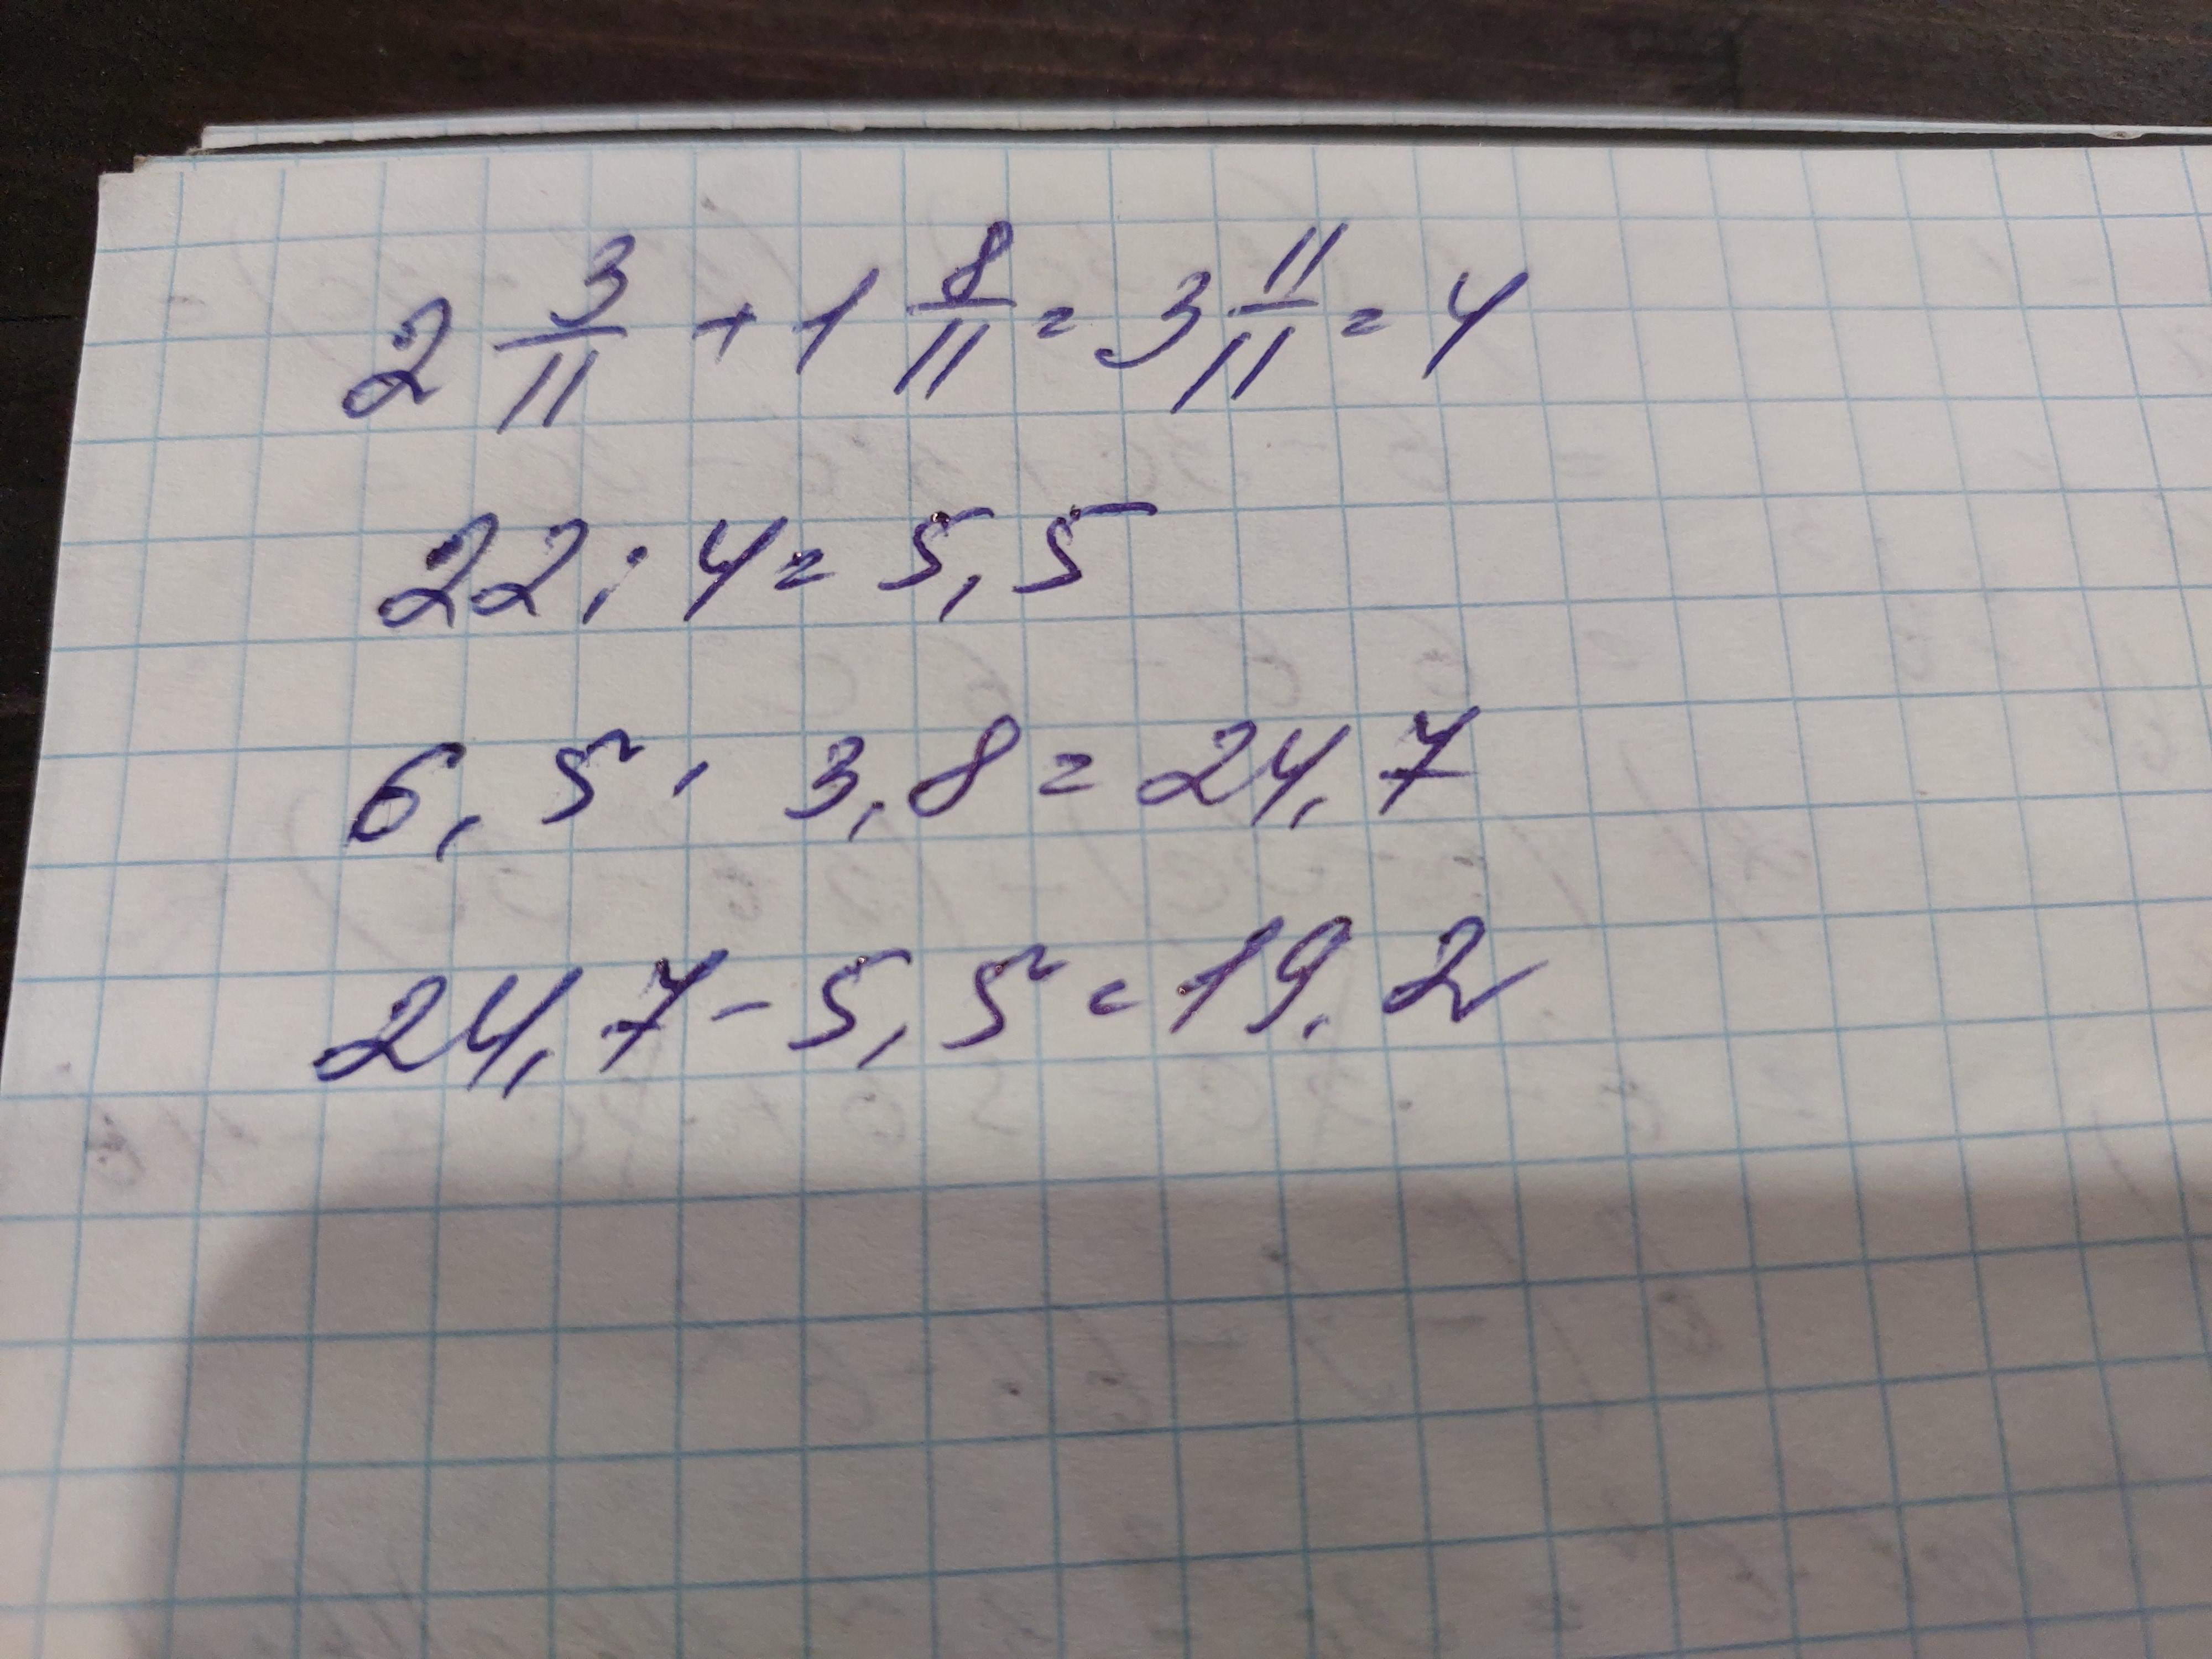 2 3/11 + 1 8/11 = 3 11/11 = 4
22 : 4 = 5,5
6,5 · 3,8 = 24,7
24,7 - 5,5 = 19,2